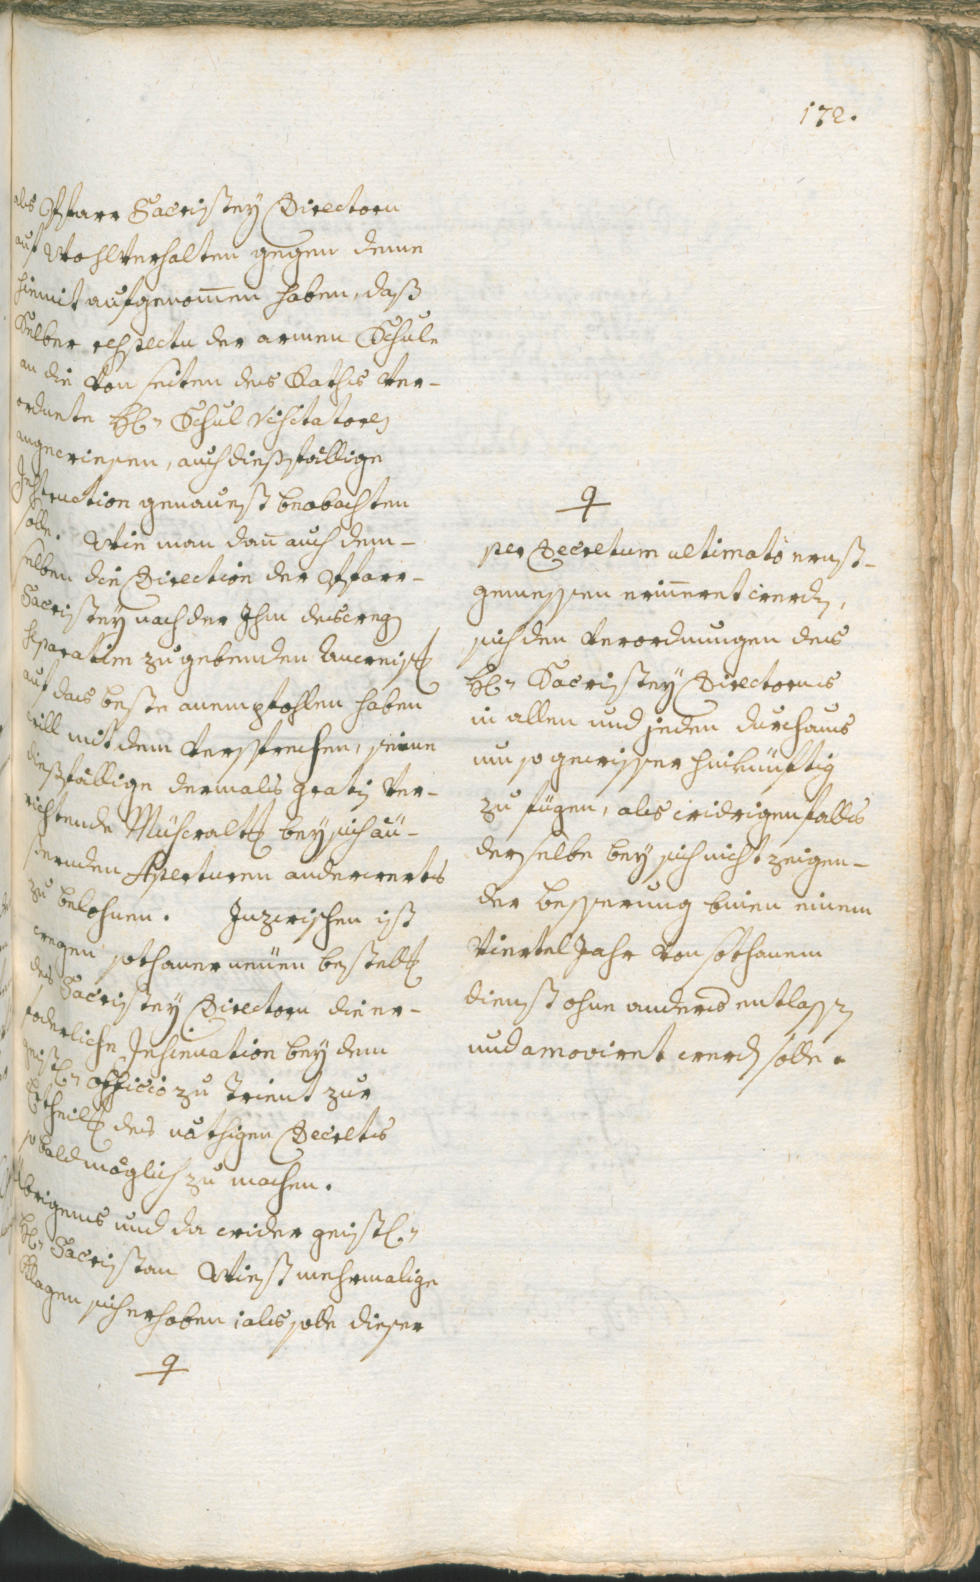 172.
als Pfarr Sacristey Directorn
auf Wohlverhalten gegen deme
hiemit aufgenom̄en haben, daß
Selber respectu der armen Schule
an die von seiten des Raths ver-
ordnete HH. Schul Visitatores
angewiesen, auch dießfällige
Instruction genauest beobachten
solle. Wie man dan̄ auch dem-
selben die Direction der Pfarr-
Sacristey nach der Ihm deswegen
separatim zu gebenden Anweisung
auf das beste anempfohlen haben
will mit dem Versprechen, seine
dießfällige dermals gratis ver-
richtende Mühewalt. bey sich äu-
ßernden Aperturen anderwerts
zu belohnen. Inzwischen ist
wegen sothaner neüen bestell.
des Sacristey Directorn die er-
foderliche Insinuation bey dem
geistl. officio zu Trient zur
Ertheil. des nöthigen Decretes
so bald möglich zu machen.
Übrigens und da wider geistl.
H. Sacristan Wiest mehrmalige
Klagen sich erhoben; als solle dieser
per Decretum ultimatò ernst-
gemessen erin̄eret werden,
sich den Verordnungen des
H. Sacristey Directorns
in allen und jeden durchaus
um so gewisser hinkünftig
zu fügen, als widrigenfalls
derselbe bey sich nicht zeigen-
der besserung bin̄en einem
Viertel Jahr von sothanem
dienst ohne anders entlassen
und amoviret werden solle.